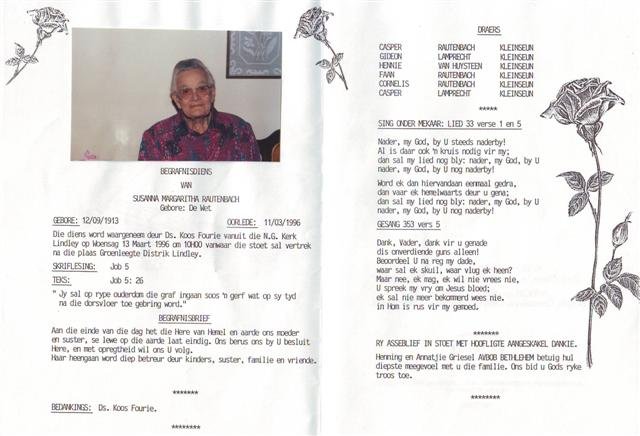 BEGRAFNISDIENS
VAN
SUSANNA MARGARITHA RAUTENBACH
Gebore: De Wet
GEBORE: 12/09/1913 OORLEDE: 11/03/1996
Die diens word waargeneem deur Ds. Koos Fourie vanuit die N.G. Kerk
Lindley op Woensdag 13 Maart 1996 om 10H00 vanwaar die stoet sal vertrek
na die plaas Groenleegte Distrik Lindley.
SKRIFLESING: Job 5
TEKS: Job 5: 26
" Jy sal op rype ouderdom die graf ingaan soos 'n gerf wat op sy tyd
na die dorsvloer toe gebring word."
BEGRAFNISBRIEF
Aan die einde van die dag het die Here van Hemel en aarde ons moeder
en suster, se lewe op die aarde laat eindig. Ons berus ons by U besluit
Here, en met opregtheid wil ons U volg.
Haar heengaan word diep betreur deur kinders, suster, familie en vriende.
*******
BEDANKINGS: Ds. Koos Fourie.
********
DRAERS
CASPER RAUTENBACH KLEINSEUN
GIDEON LAMPRECHT KLEINSEUN
HENNIE VAN HUYSTEEN KLEINSEUN
FAAN RAUTENBACH KLEINSEUN
CORNELIS RAUTENBACH KLEINSEUN
CASPER LAMPRECHT KLEINSEUN
*****
SING ONDER MEKAAR: LIED 33 verse 1 en 5
Nader, my God, by U steeds naderby!
Al is daar ook 'n kruis nodig vir my;
dan sal my lied nog bly: nader, my God, by U
nader, my God, by U nog naderby!
Word ek dan hiervandaan eenmaal gedra,
dan vaar ek hemelwaarts deur u gena;
dan sal my lied nog bly: nader, my God, by U
nader, my God, by U nog naderby!
GESANG 353 vers 5
Dank, Vader, dank vir u genade
dis onverdiende guns alleen!
Beoordeel U na reg my dade,
waar sal ek skuil, waar vlug ek heen?
Maar nee, ek mag, ek wil nie vrees nie.
U spreek my vry om Jesus bloed;
ek sal nie meer bekommerd wees nie.
in Hom is rus vir my gemoed.
*******
RY ASSEBLIEF IN STOET MET HOOFLIGTE AANGESKAKEL DANKIE.
Henning en Annatjie Griesel AVBOB BETHLEHEM betuig hul
diepste meegevoel met u die familie. Ons bid u Gods ryke
troos toe.
********